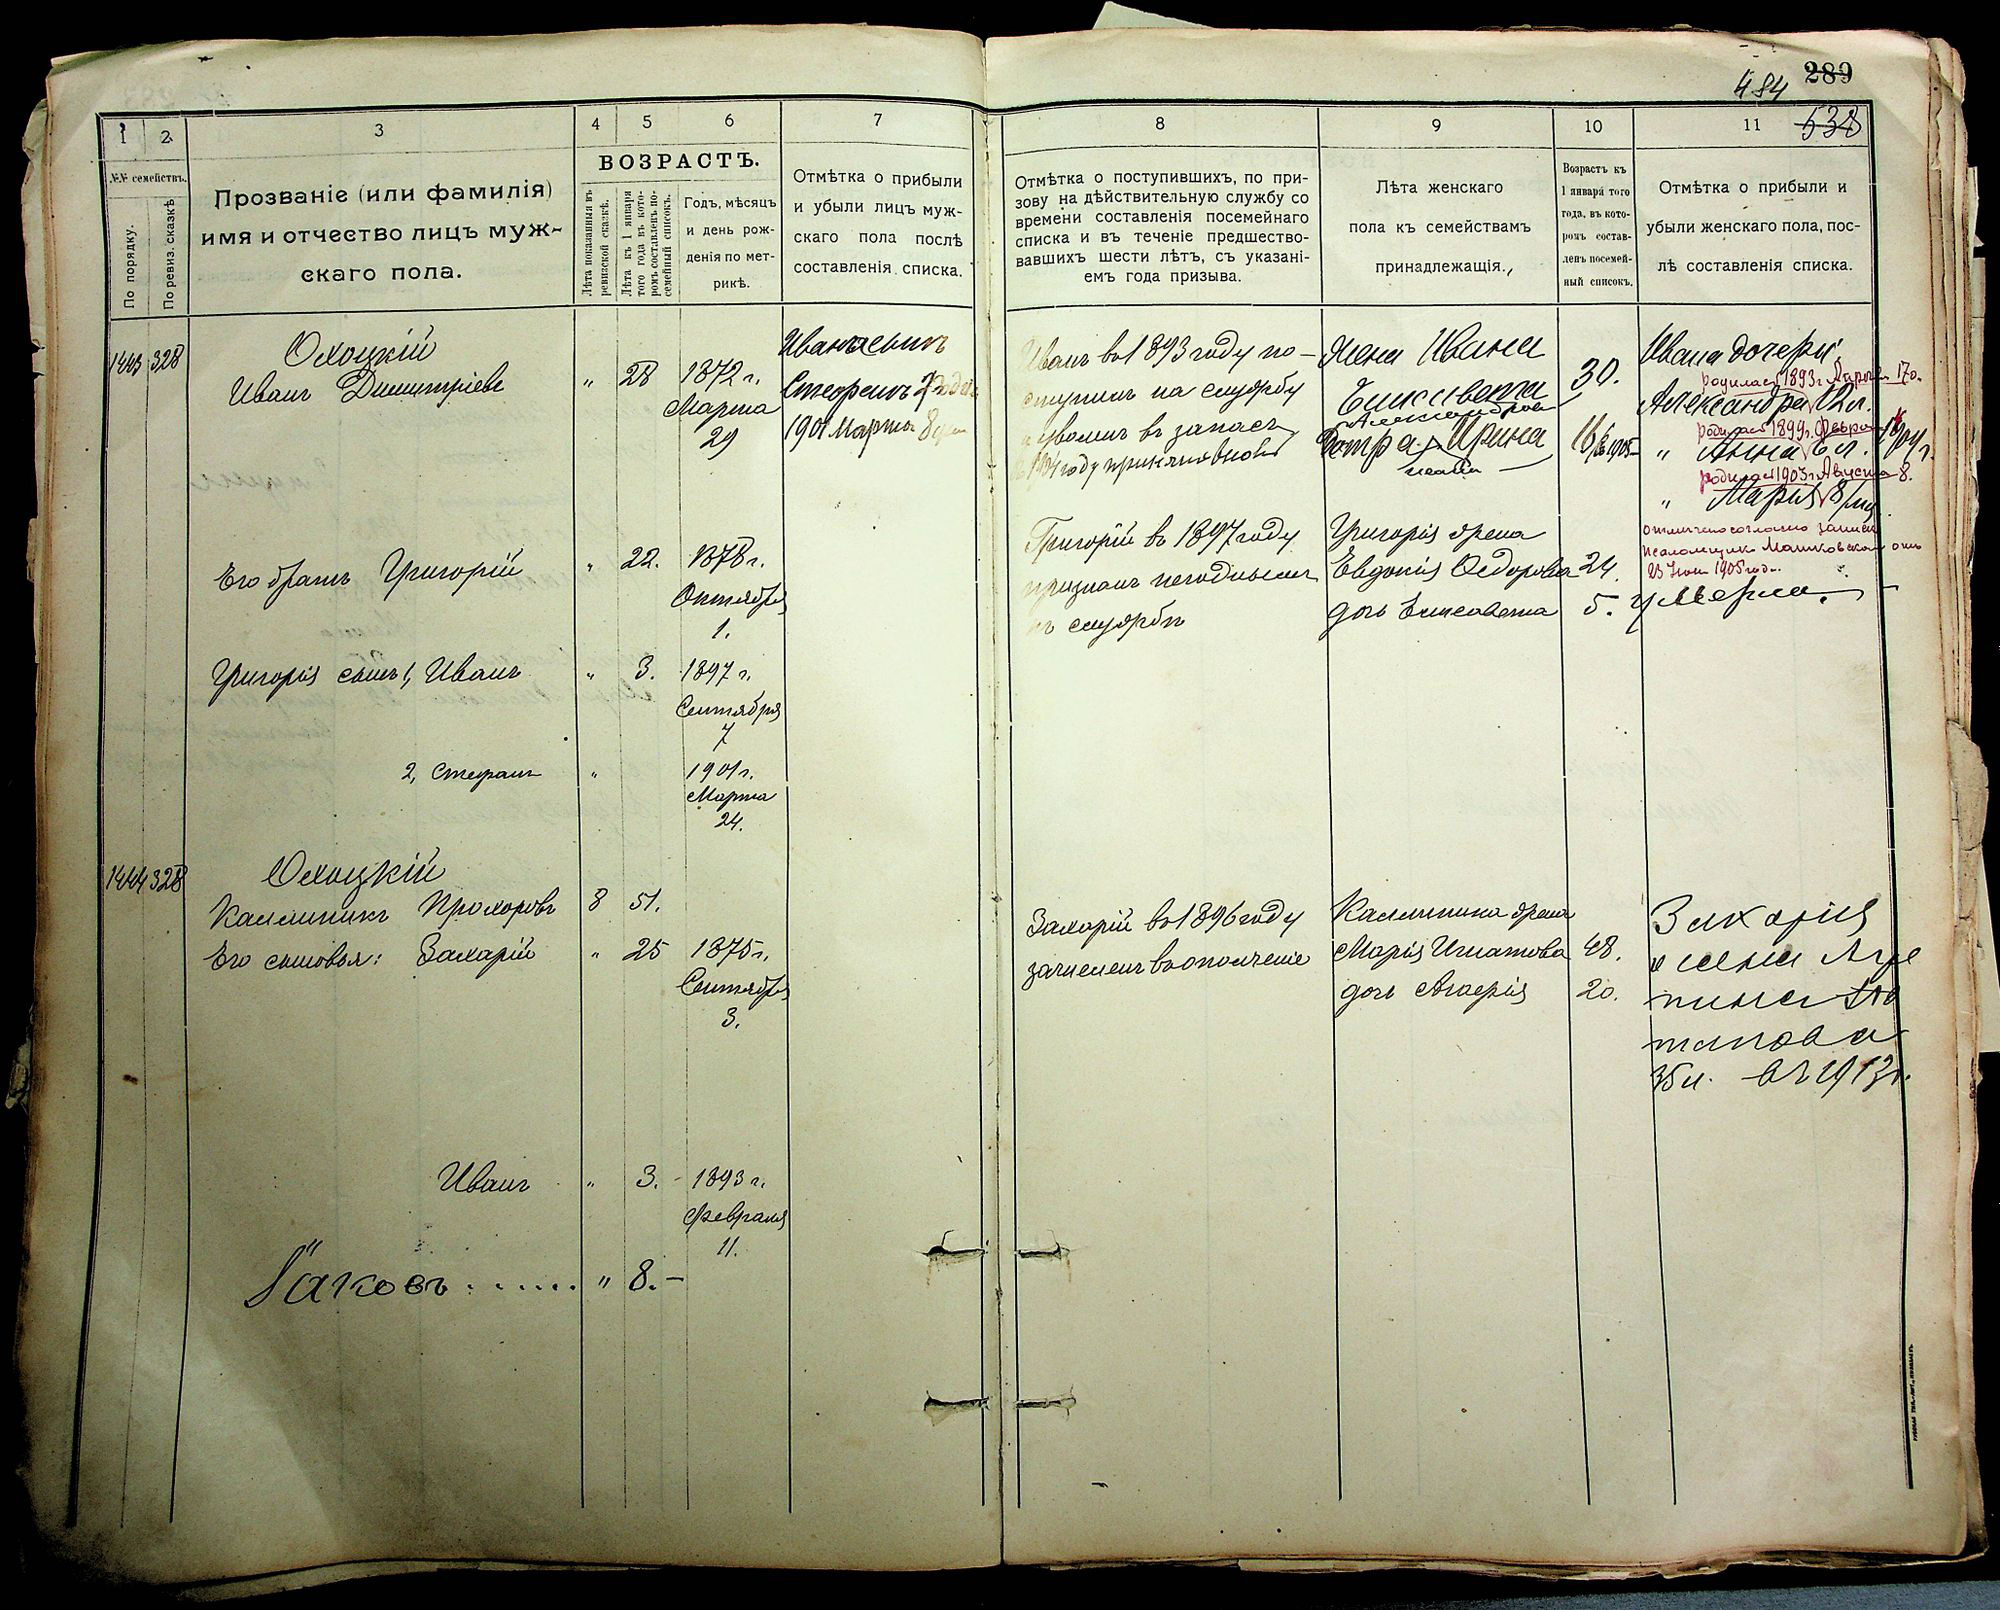 289
484
538
1
2
3
4
5
6
7
8
9
10
11
№№ семействъ.
По порядку.
По ревиз. сказкѣ
Прозваніе (или фамилія)
имя и отчество лицъ муж-
скаго пола.
ВОЗРАСТЪ.
Лѣта показанныя въ
ревизской сказкѣ.
Лѣта къ 1 января
того года въ кото-
ромъ составленъ по-
семейный списокъ.
Годъ, мѣсяцъ
и день рож-
денія по мет-
рикѣ.
Отмѣтка о прибыли
и убыли лицъ муж-
скаго пола послѣ
составленія списка.
Отмѣтка о поступившихъ, по при-
зову на дѣйствительную службу со
времени составленія посемейнаго
списка и въ теченіе предшество-
вавшихъ шести лѣтъ, съ указані-
емъ года призыва.
Лѣта женскаго
пола къ семействамъ
принадлежащія.,
Возрастъ къ
1 января того
года, въ кото-
ромъ состав-
ленъ посемей-
ный списокъ.
Отмѣтка о прибыли и
убыли женскаго пола, пос-
лѣ составленія списка.
1443 328
Охоцкій
Иванъ Димитріевъ
" 28 1872 г.
Марта
29
Ивана сынъ
1901 Марта 8
Иванъ въ 1893 году по-
ступилъ на службу
и уволенъ въ запасъ
году принятъ вновь
Жена Ивана
Елисавета 30.
Александрова
Ирина 16
Ивана дочери:
родилась 1893 г. Марта 17 о.
Александра 12 л.
родилась 1899 г. Февра
" Анна 6 л.
родилась 1903 г. Августа 8.
" Марія 8
отмѣчено согласно записи
псаломщика
1905 год.
Его братъ Григорій " 22. 1878 г.
Октября
1.
Григорій въ 1897 году
признанъ негоднымъ
къ службѣ
Григорія жена
Евдокія Ѳедорова 24.
дочь Елисавета 5. умерла.
Григорія сынъ 1, Иванъ " 3. 1897 г.
Сентября
7
2, Стефанъ " 1901 г.
Марта
24.
1444 328
Охоцкій
Каллиникъ Прохоровъ 8 51.
Его сыновья: Захарій " 25 1875 г.
Сентября
3.
Захарій въ 1896 году
зачисленъ въ ополченіе
Каллиника жена
Марія Игнатова 48.
дочь 20.
Захарія
жена Агре
пина По
тапова
35 л. въ 1913 г.
Иванъ " 3. - 1893 г.
Февраля
11.
Іаковъ " 8. -